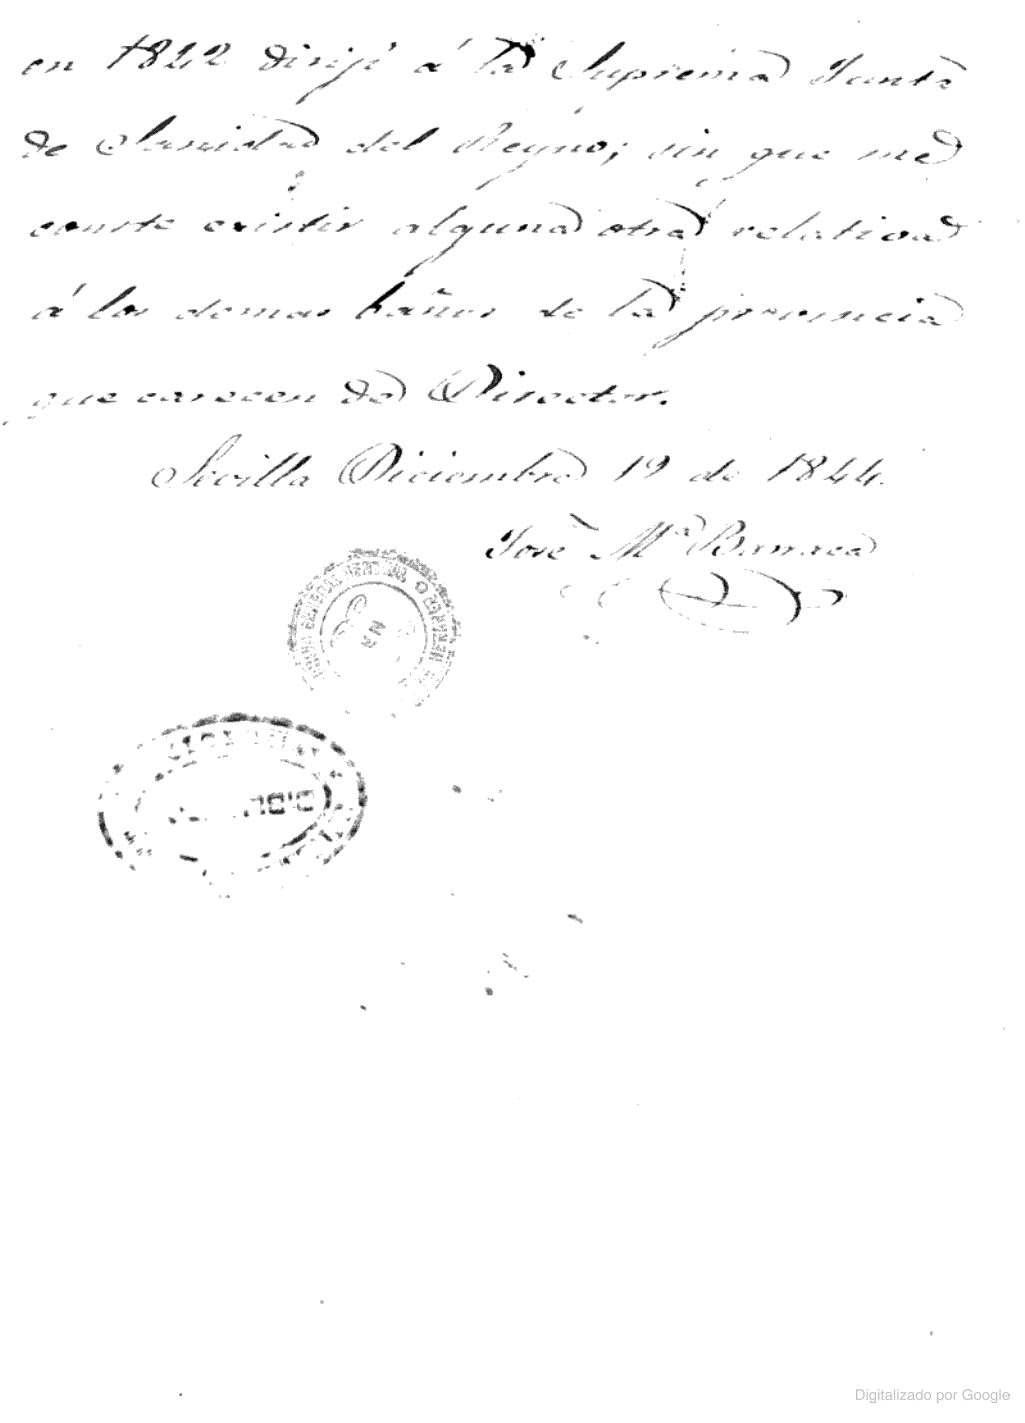 en 1842 dirijí á la Suprema Junta
de Sanidad del Reyno; sin que me
conste existir alguna otra relativa
á los demas baños de la provincia
que carecen de Director.
Sevilla Diciembre 19 de 1844.
José Mª
Digitalizado por Google